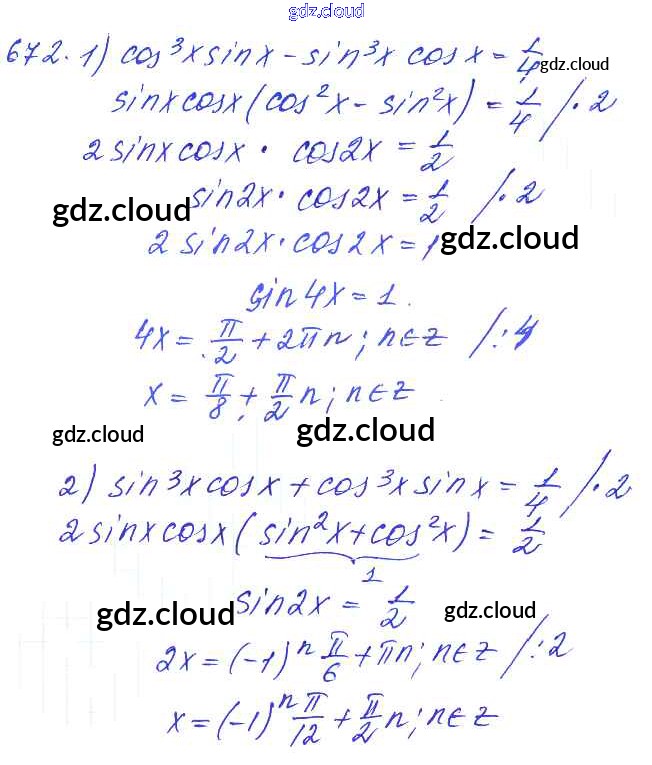 gdz.cloud
672. 1) cos³x sinx - sin³x cosx = 1/4 gdz.cloud
sinx cosx (cos²x - sin²x) = 1/4 /·2
2 sinx cosx · cos2x = 1/2
sin2x · cos2x = 1/2 /·2
gdz.cloud
2 sin2x · cos2x = 1 gdz.cloud
sin4x = 1.
4x = π/2 + 2πn; n∈Z /:4
x = π/8 + π/2 n; n∈Z
gdz.cloud gdz.cloud
2) sin³x cosx + cos³x sinx = 1/4 /·2
2 sinx cosx (sin²x + cos²x) = 1/2
1
gdz.cloud sin2x = 1/2 gdz.cloud
2x = (-1)ⁿ π/6 + πn; n∈Z /:2
x = (-1)ⁿ π/12 + π/2 n; n∈Z